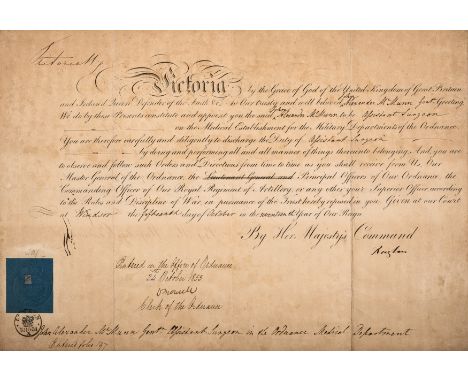 Victoria R
Victoria by the Grace of God of the United Kingdom of Great Britain
and Ireland Queen Defender of the Faith &c. To Our trusty and well beloved John Alexander McMunn Gent. Greeting
We do by these Presents constitute and appoint you the said John Alexander McMunn to be Assistant Surgeon
on the Medical Establishment for the Military Departments of the Ordnance.
You are therefore carefully and diligently to discharge the Duty of Assistant Surgeon
by doing and performing all and all manner of things thereunto belonging. And, you are
to observe and follow such Orders and Directions from time to time as you shall receive from Us, Our
Master General of the Ordnance, the Lieutenant General and Principal Officers of Our Ordnance, the
Commanding Officer of Our Royal Regiment of Artillery, or any other your Superior Officer according
to the Rules and Discipline of War in pursuance of the Trust hereby reposed in you Given at our Court
at Windsor the fifteenth day of October in the seventeenth Year of Our Reign
By Her Majesty's Command
Raglan
Entered in the Office of Ordnance
24 October 1853
Clerk of the Ordnance
John Alexander McMunn Gent. Assistant Surgeon in the Ordnance Medical Department